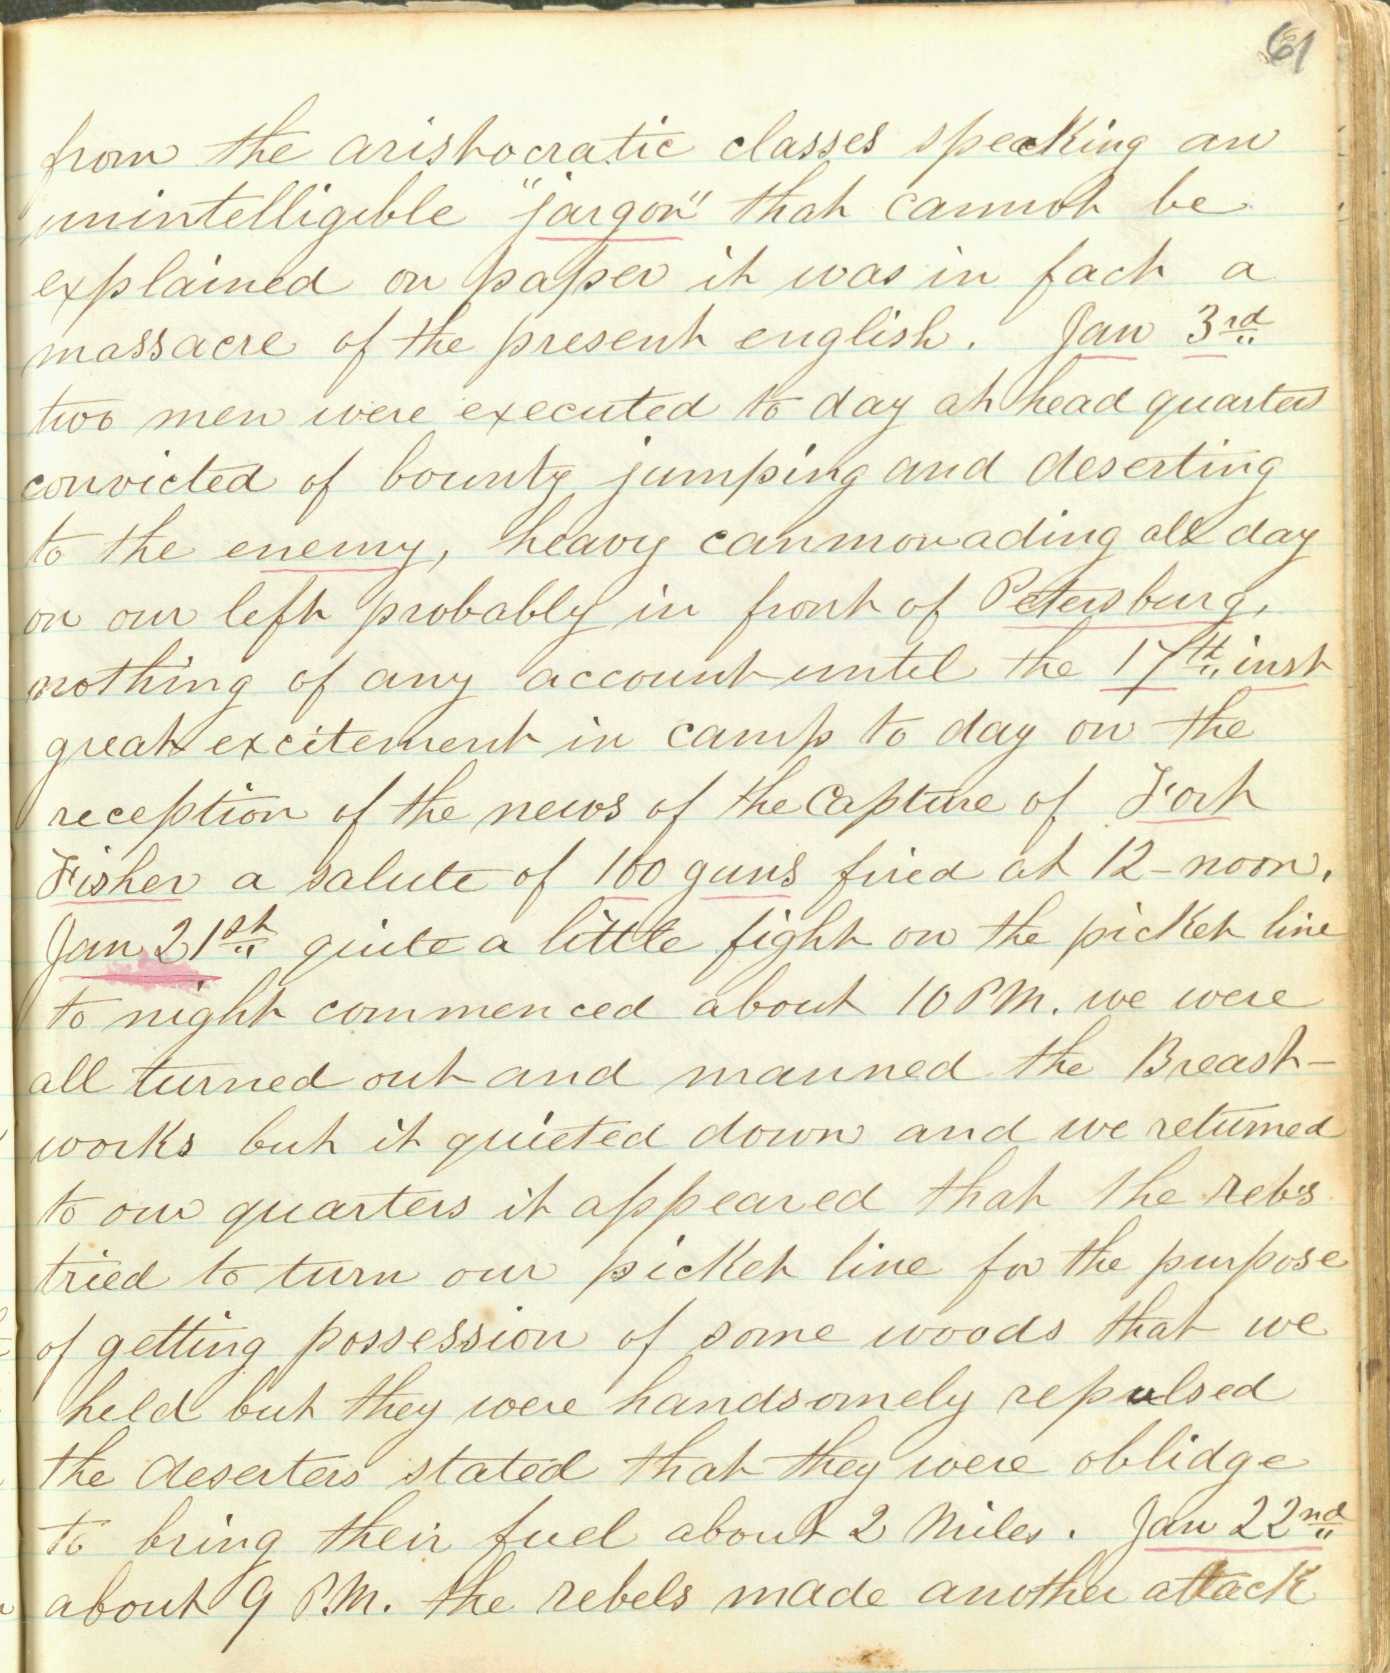 61
from the aristocratic classes speaking an
unintelligible "jargon" that cannot be
explained on paper it was in fact a
massacre of the present english. Jan 3rd
two men were executed to day at head quarters
convicted of bounty jumping and deserting
to the enemy, heavy canmonading all day
on our left probably in front of Petersburg,
nothing of any account until the 17th inst
great excitement in camp to day on the
reception of the news of the Capture of Fort
Fisher a salute of 100 guns fired at 12-noon.
Jan 21st quite a little fight on the picket line
to night commenced about 10 P.M. we were
all turned out and manned the Breast-
works but it quieted down and we returned
to our quarters it appeared that the rebs
tried to turn our picket line for the purpose
of getting possession of some woods that we
held but they were handsomely repulsed
the deserters stated that they were oblidge
to bring their fuel about 2 Miles. Jan 22nd
about 9 P.M. the rebels made another attack